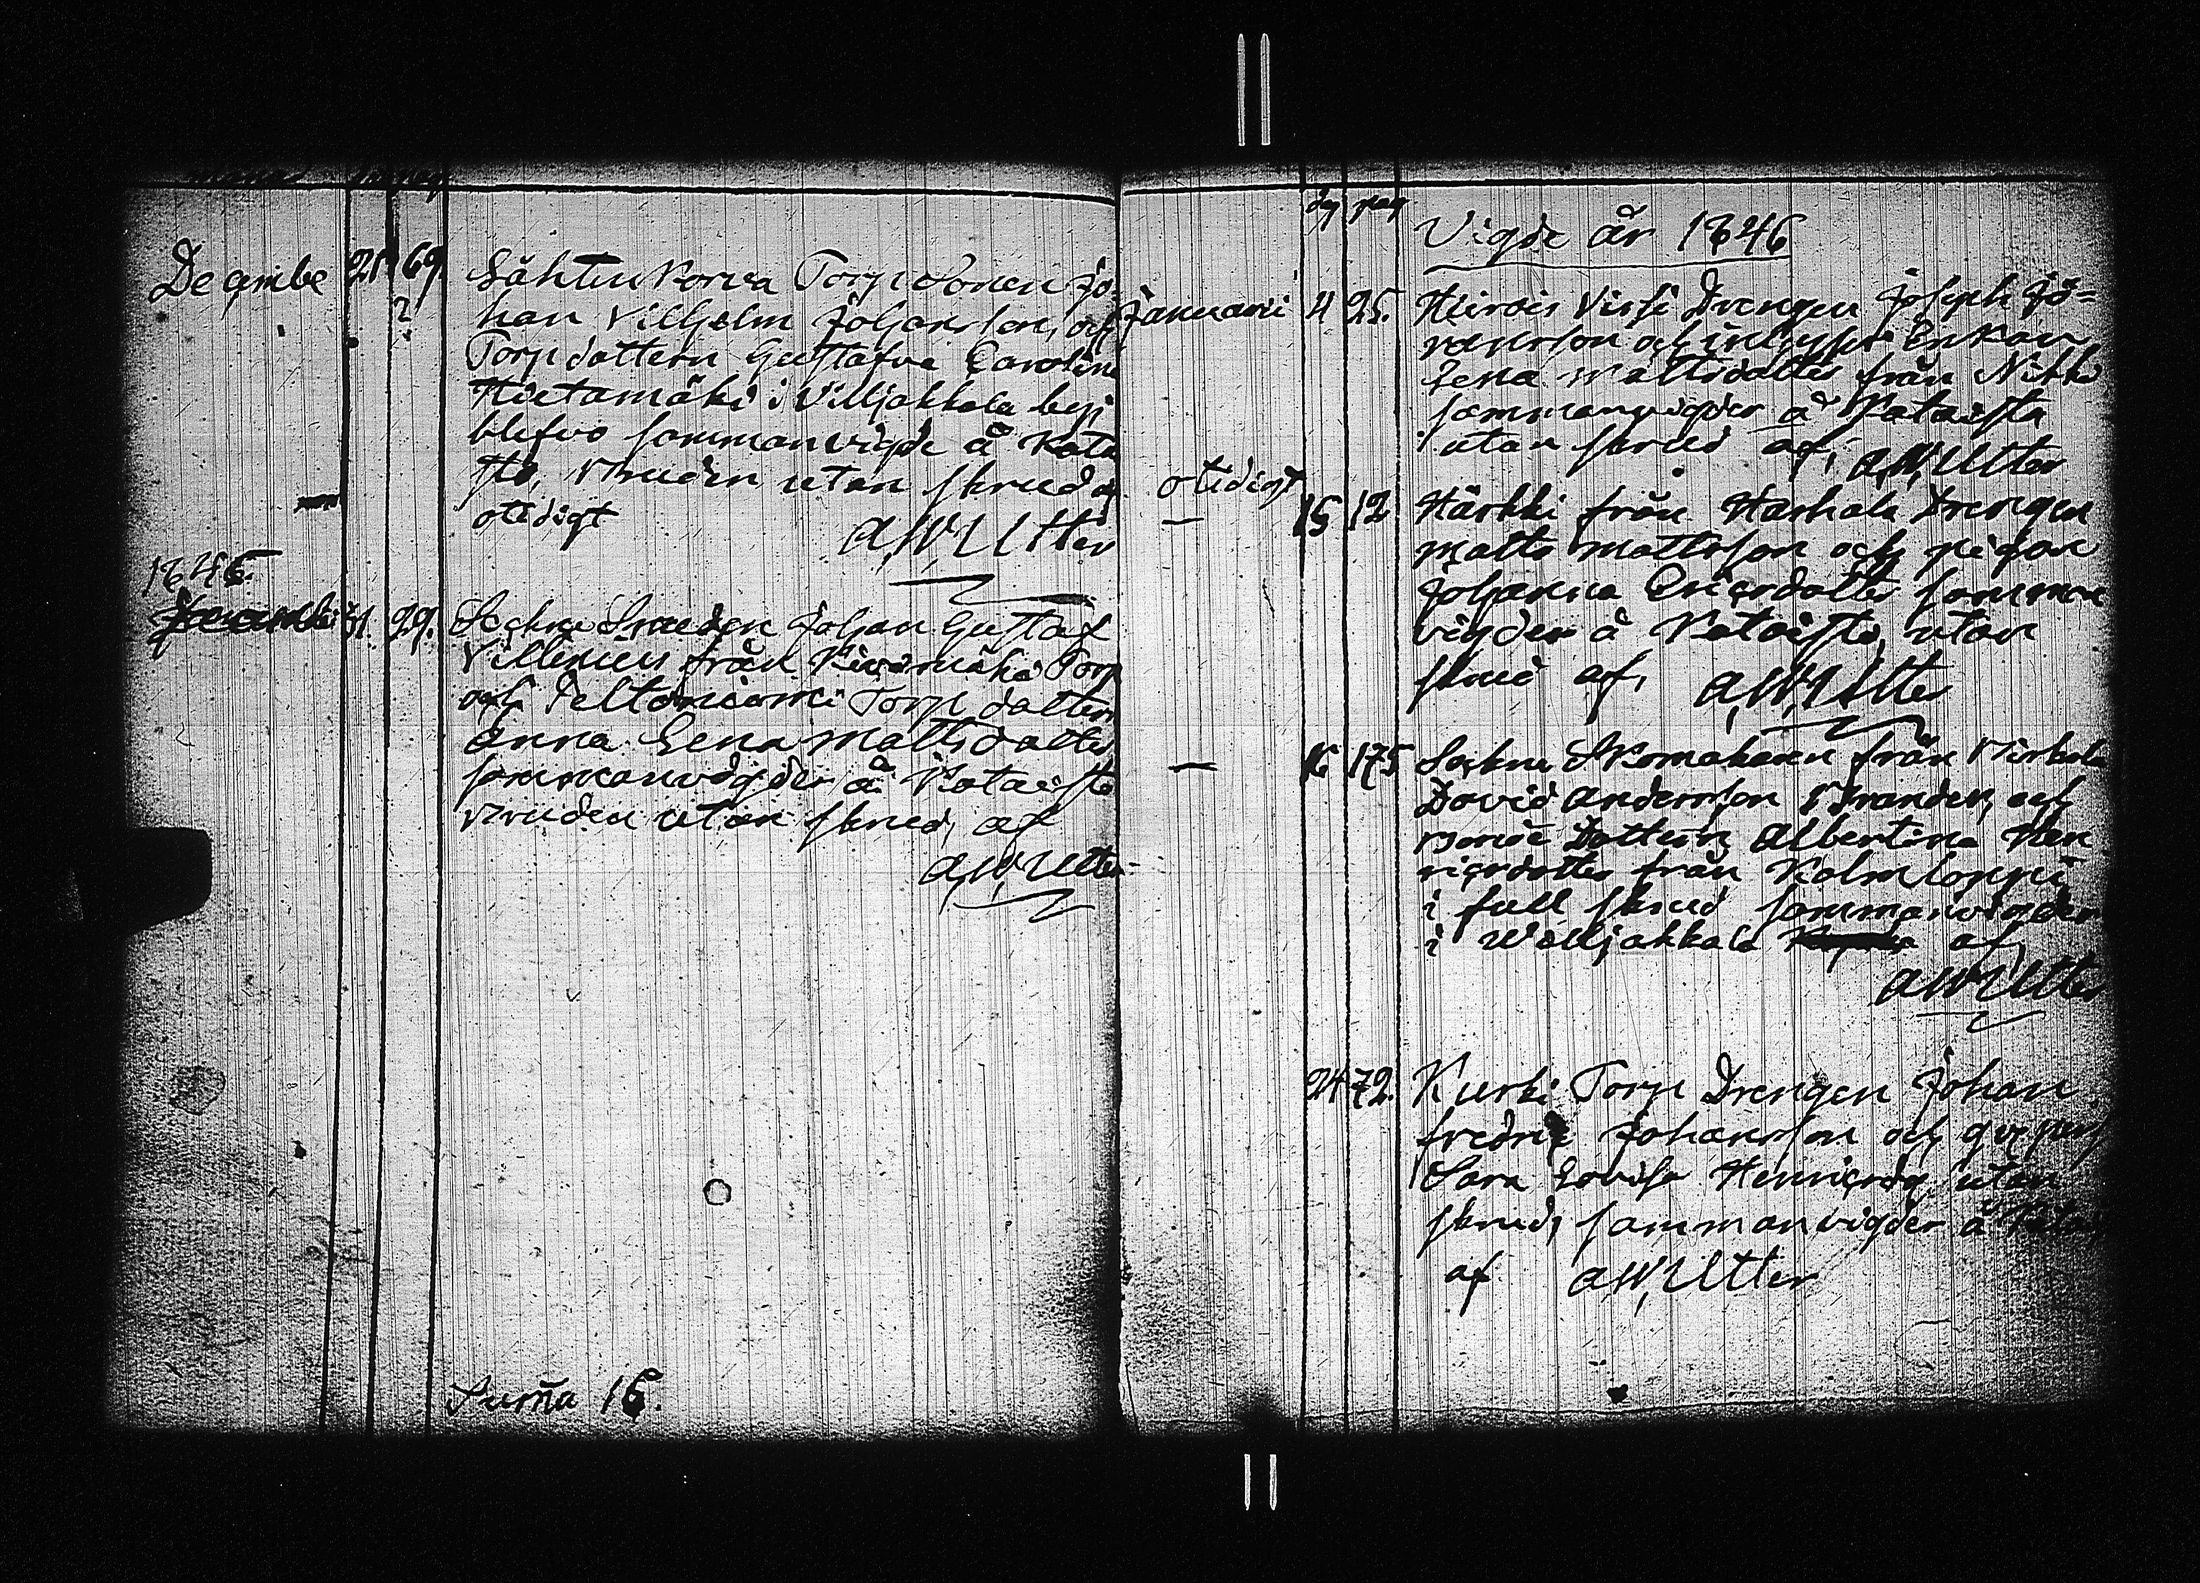 Decembe 21 69. Lähteenkorva Torp Sonen Jo
2 han Vilhelm Johansson, och
Torpdottern Gustafva Carolina
Hietamäki i Viljakkala begi
blefvo sammanvigde å Kata
sto, Bruden utan skrud
otidigt A,W,Utter
1846.
31. 29. Sockne Smeden Johan Gustaf
Villenius från Torp
och Peltoniemi Torp dottern
Anna Lena Mattsdotter
sammanvigder å Kotaisto
Bruden utan skrud, af
A,W,Utter
Suma̅ 16.
dg pag
Vigde år 1846
Januari 4 25. Drengen Joseph Jö=
ransson och inhyses Enkan
Lena Mattsdotter från
sammanvigder å Kotaisto
utan skrud af, A,W,Utter
otidigt
— 15 12 Härkki från Harhala Drengen
Matts Mattsson och pigan
Johanna Ericsdotter samman
vigder å Kotaisto, utan
skrud af, A,W,Utter
— 16 175 Sockne Skomakaren från
David Andersson Brander, och
Bonde Dottern Albertina Hen
ricsdotter från Kalmloppi
i full skrud sammanvigder
i Williakkala af
A,W,Utter
24 72. Kurki Torp Drengen Johan
Fredric Johansson och
Sara Lovisa Henricsdr, utan
skrud, sammanvigder å
af A,W,Utter